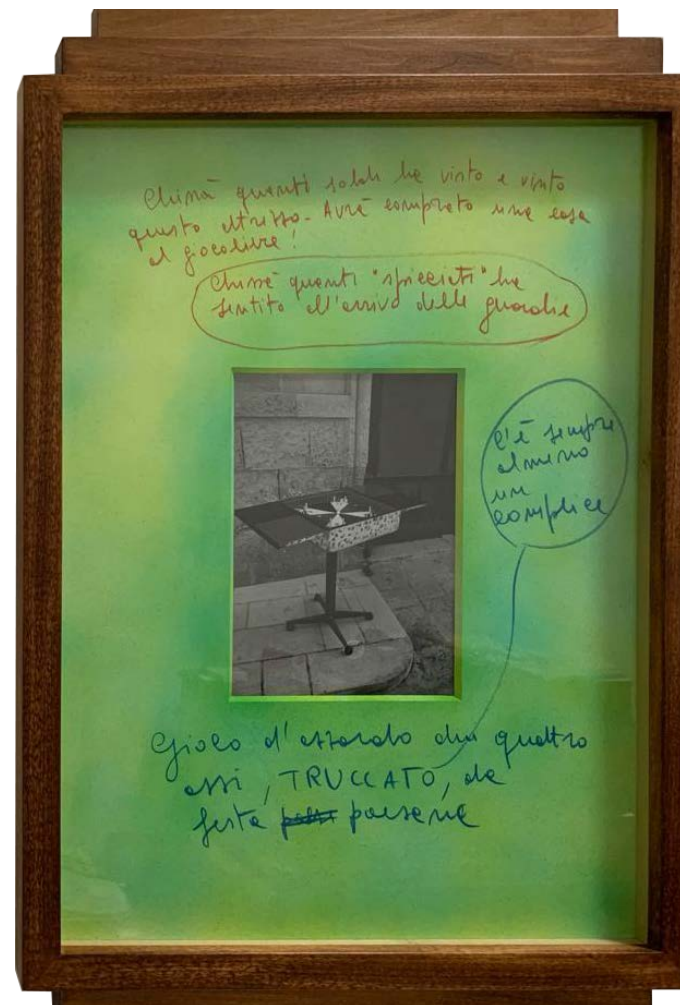 Chissà quanti soldi ha visto e vinto
questo attrezzo. Avrà comprato una casa
al giocoliere!
Chissà quanti "spicciati" ha
sentito all'arrivo delle guardie
c'è sempre
almeno
un
complice
Gioco d'azzardo dei quattro
assi, TRUCCATO, da
festa paesana